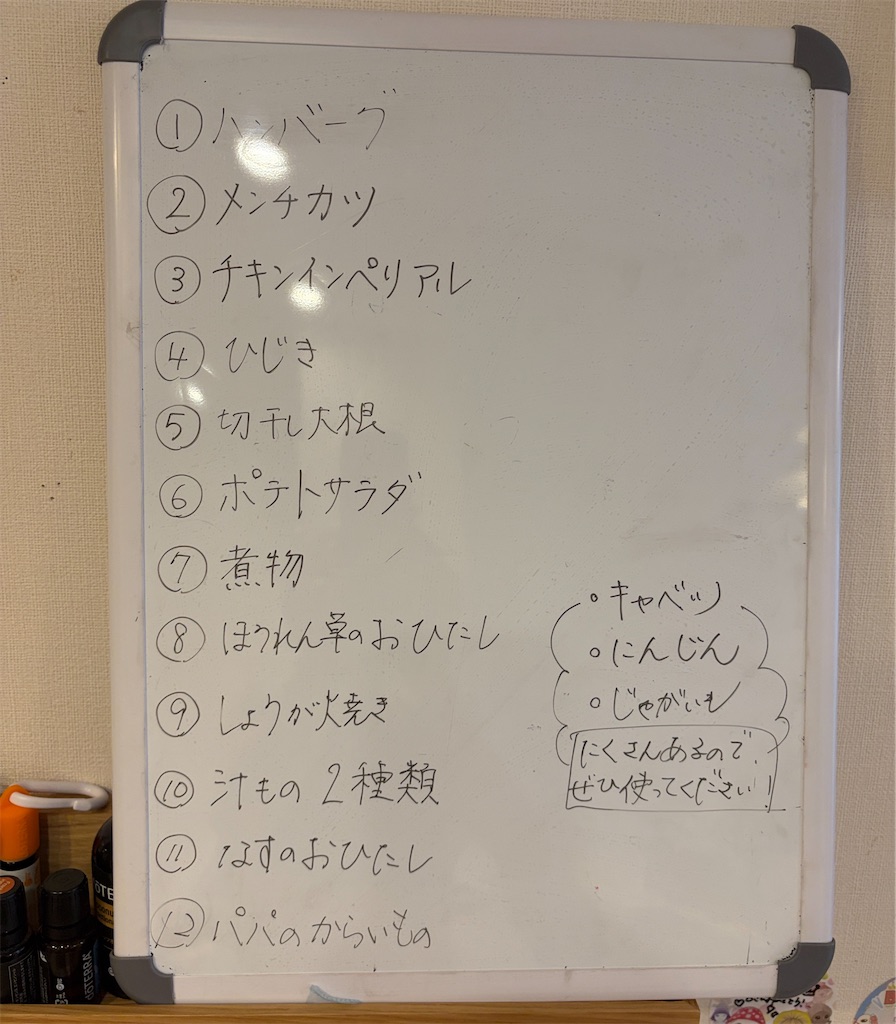 ① ハンバーグ
② メンチカツ
③ チキンインペリアル
④ ひじき
⑤ 切干し大根
⑥ ポテトサラダ
⑦ 煮物
⑧ ほうれん草のおひたし
⑨ しょうが焼き
⑩ 汁もの 2種類
⑪ なすのおひたし
⑫ パパのからいもの
。キャベツ
。にんじん
。じゃがいも
たくさんあるので、
ぜひ使ってください！
dōTERRA